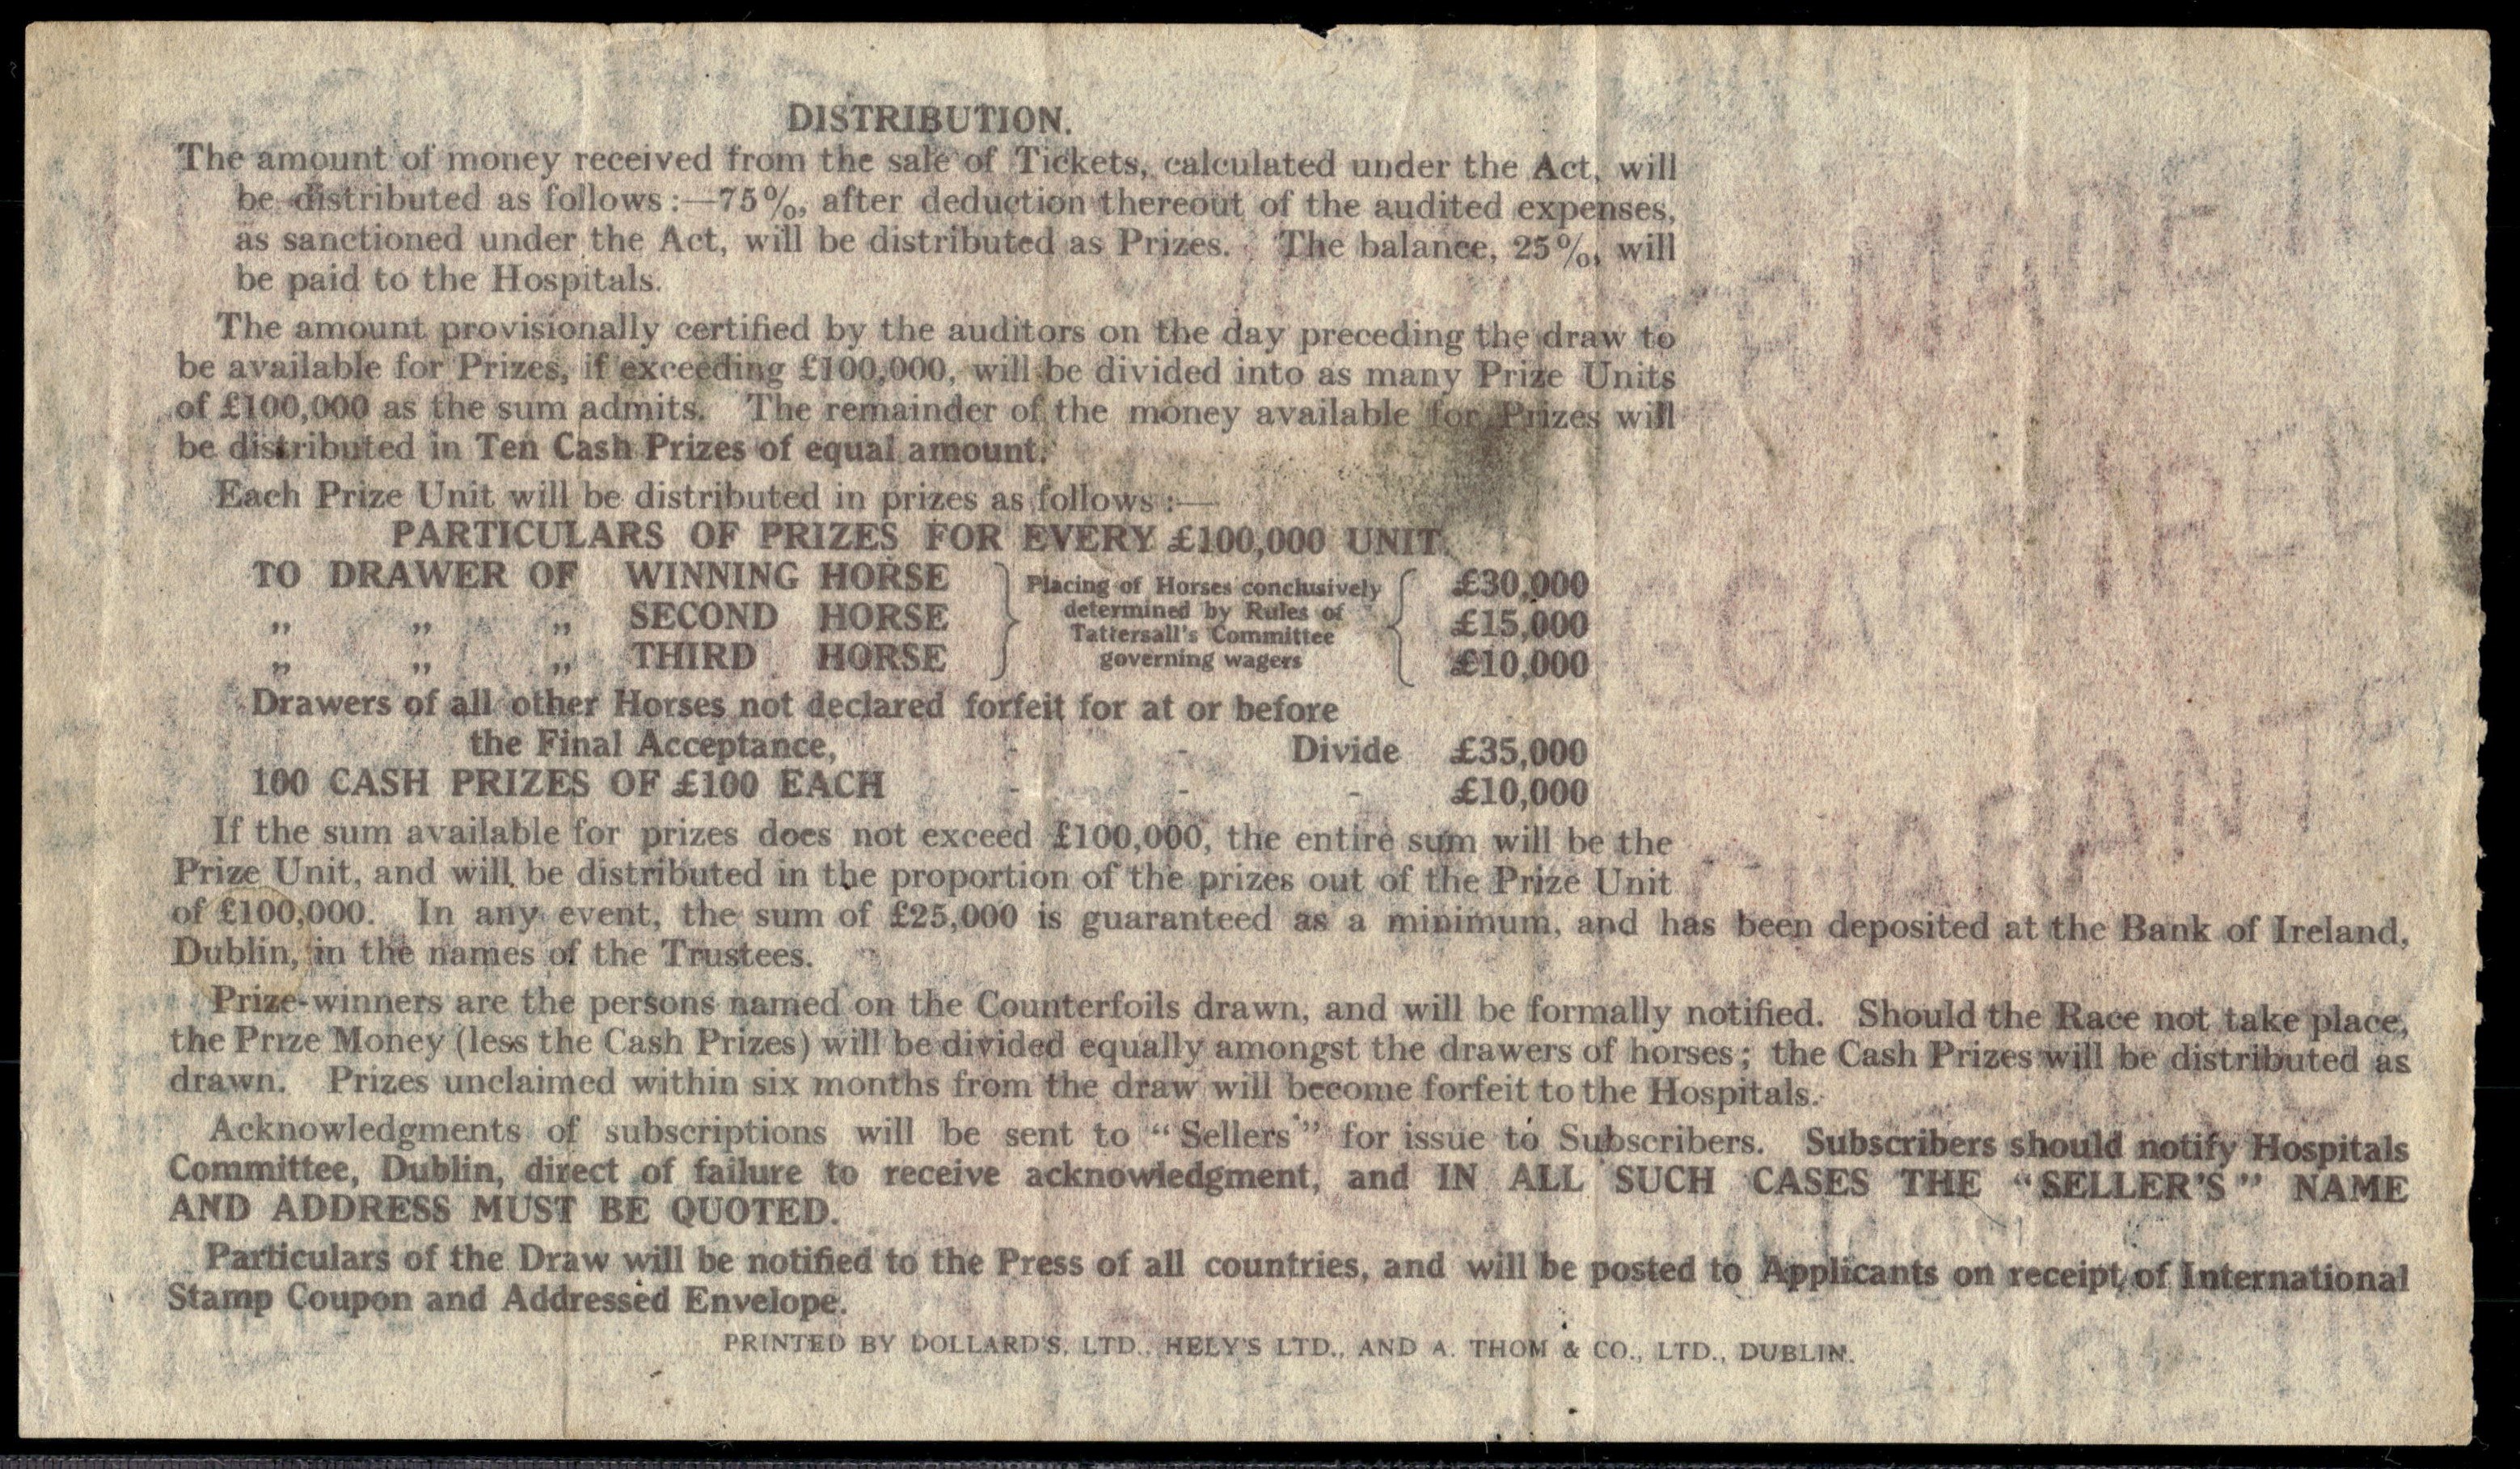 DISTRIBUTION.
The amount of money received from the sale of Tickets, calculated under the Act, will
be distributed as follows :—75%, after deduction thereout of the audited expenses,
as sanctioned under the Act, will be distributed as Prizes. The balance, 25%, will
be paid to the Hospitals.
The amount provisionally certified by the auditors on the day preceding the draw to
be available for Prizes, if exceeding £100,000, will be divided into as many Prize Units
of £100,000 as the sum admits. The remainder of the money available for Prizes will
be distributed in Ten Cash Prizes of equal amount.
Each Prize Unit will be distributed in prizes as follows :—
PARTICULARS OF PRIZES FOR EVERY £100,000 UNIT.
TO DRAWER OF WINNING HORSE £30,000
„ „ „ SECOND HORSE £15,000
„ „ „ THIRD HORSE £10,000
Placing of Horses conclusively
determined by Rules of
Tattersall's Committee
governing wagers
Drawers of all other Horses not declared forfeit for at or before
the Final Acceptance, - - Divide £35,000
100 CASH PRIZES OF £100 EACH - - - £10,000
If the sum available for prizes does not exceed £100,000, the entire sum will be the
Prize Unit, and will be distributed in the proportion of the prizes out of the Prize Unit
of £100,000. In any event, the sum of £25,000 is guaranteed as a minimum, and has been deposited at the Bank of Ireland,
Dublin, in the names of the Trustees.
Prize-winners are the persons named on the Counterfoils drawn, and will be formally notified. Should the Race not take place,
the Prize Money (less the Cash Prizes) will be divided equally amongst the drawers of horses ; the Cash Prizes will be distributed as
drawn. Prizes unclaimed within six months from the draw will become forfeit to the Hospitals.
Acknowledgments of subscriptions will be sent to “Sellers” for issue to Subscribers. Subscribers should notify Hospitals
Committee, Dublin, direct of failure to receive acknowledgment, and IN ALL SUCH CASES THE “SELLER'S” NAME
AND ADDRESS MUST BE QUOTED.
Particulars of the Draw will be notified to the Press of all countries, and will be posted to Applicants on receipt, of International
Stamp Coupon and Addressed Envelope.
PRINTED BY DOLLARD'S, LTD., HELY'S LTD., AND A. THOM & CO., LTD., DUBLIN.